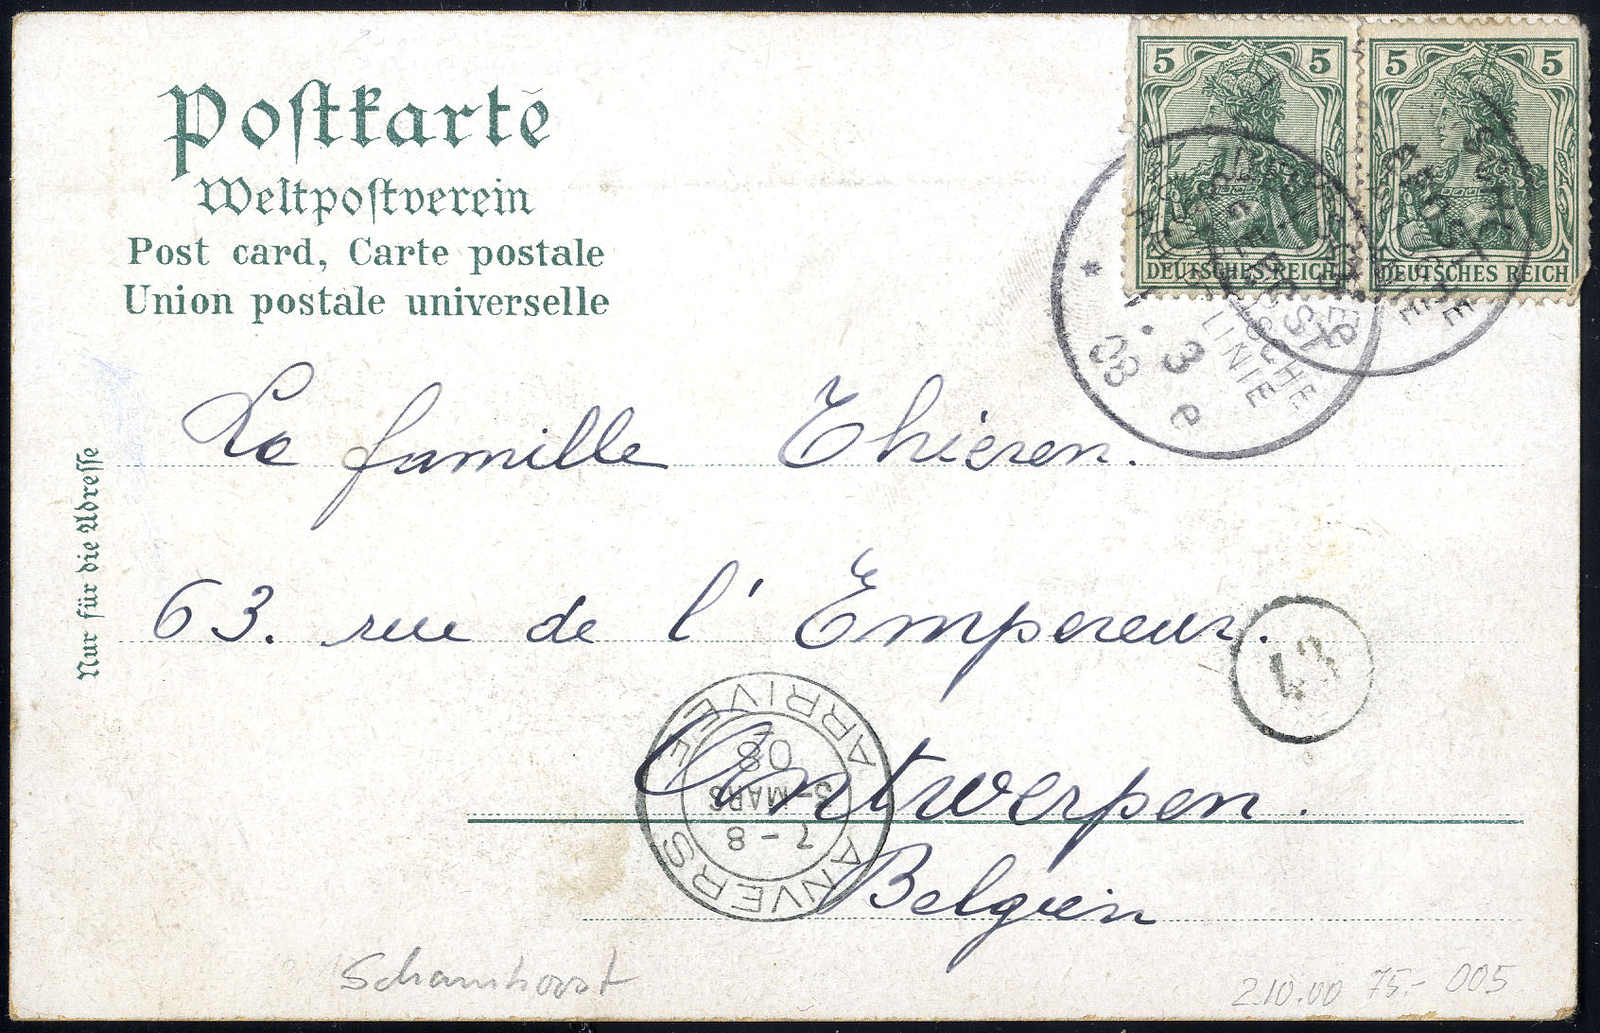 Postkarte
Weltpostverein
Post card, Carte postale
Union postale universelle
Nur für die Adresse
5 5
DEUTSCHES REICH
5 5
DEUTSCHES REICH
LINIE
3
08
e
La famille Thieren.
63. rue de l' Empereur.
Antwerpen.
Belgien
ANVERS
ARRIVEE
7-8
MARS
08
43
Scharnhorst
2.10.00 75.- 005